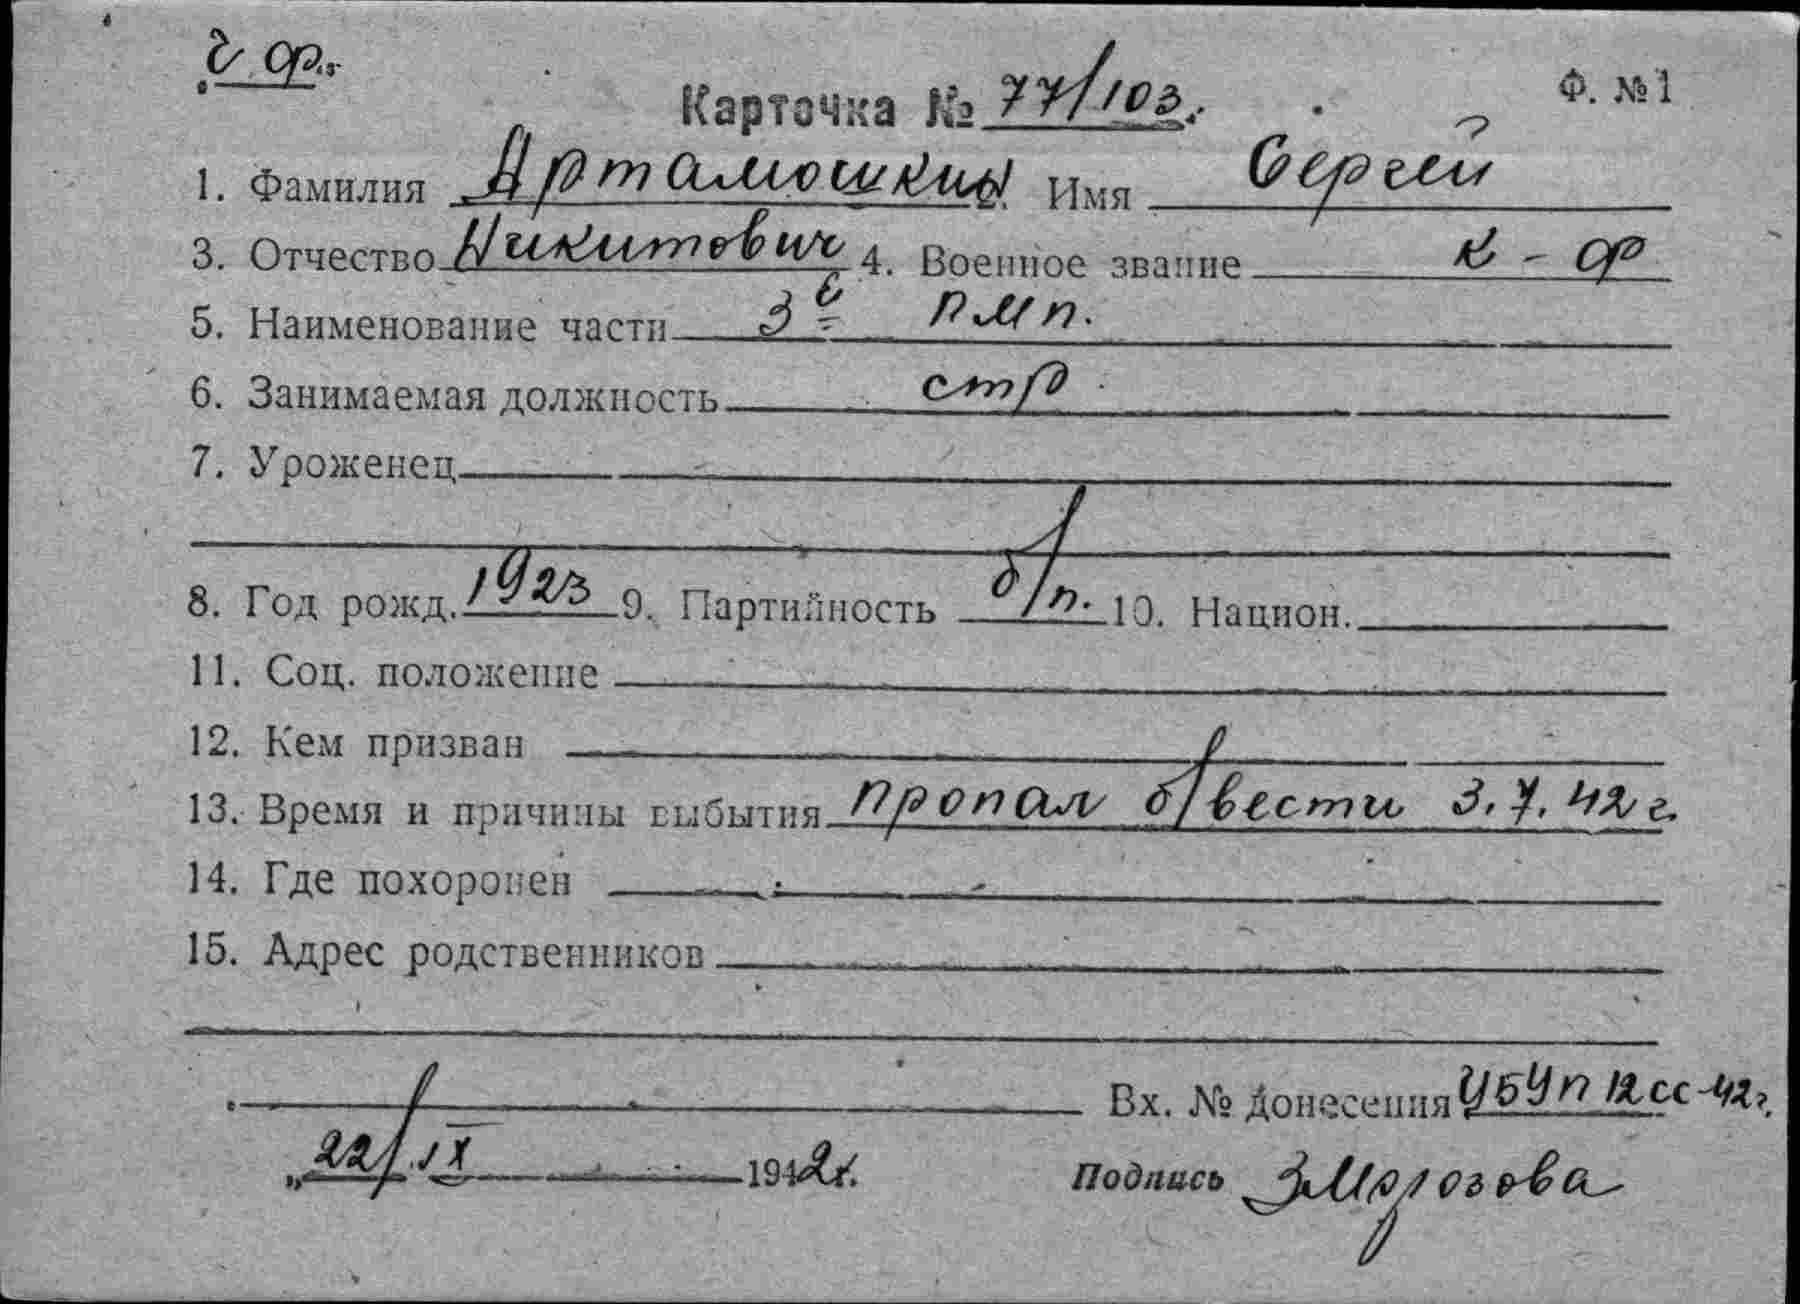 Ф. №1
Карточка № 77/103.
1. Фамилия Артамошкин Имя Сергей
3. Отчество Никитович 4. Военное звание к-ф
5. Наименование части 3й пмп.
6. Занимаемая должность стр
7. Уроженец
8. Год рожд. 1923 9. Партийность б/п. 10. Национ.
11. Соц. положение
12. Кем призван
13. Время и причины выбытия пропал б/вести 3.7.42 г.
14. Где похоронен
15. Адрес родственников
Вх. № донесения УБУП 12сс-42г.
„22/IX 1942г.
Подпись ЗМорозова